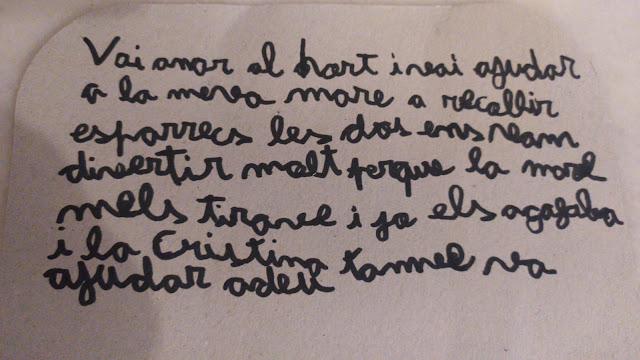 Vai anar al hort i vai ajudar
a la meva mare a recollir
esparrecs les dos ens veam
divertir molt perque la mare
mels tirave i jo els agafaba
i la Cristina
ajudar adeu tanmee va